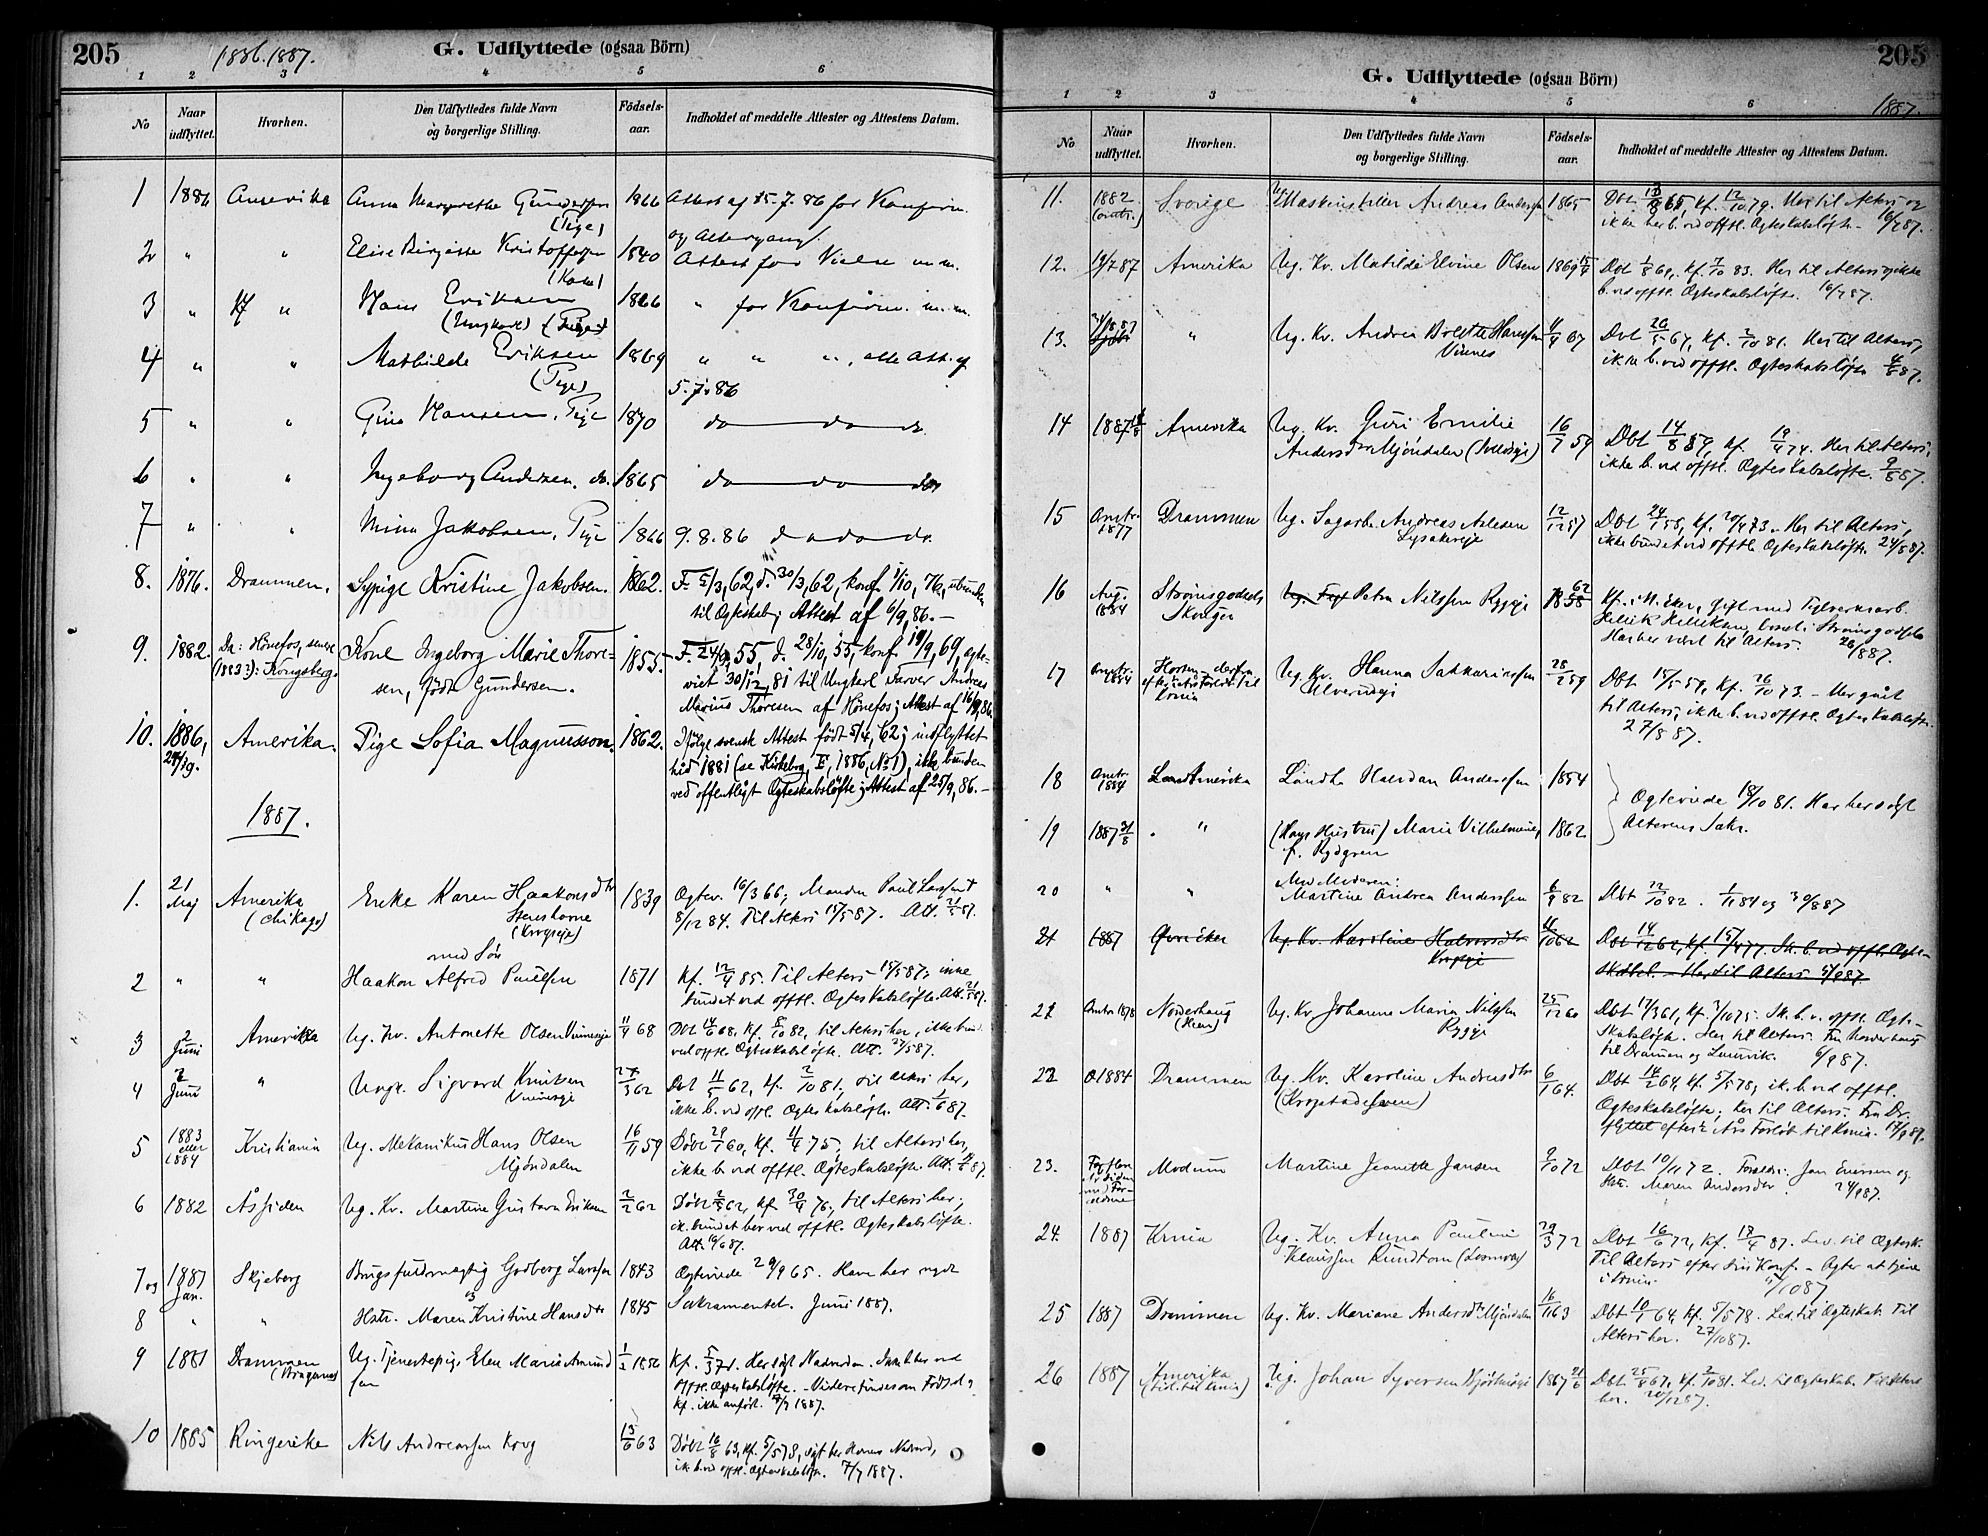 205
1886. 1887.
G. Udflyttede (ogsaa Börn)
1 2 3 4 5 6
No
Naar udflyttet.
Hvorhen.
Den Udflyttedes fulde Navn og borgerlige Stilling.
Födsels-aar.
Indholdet af meddelte Attester og Attestens Datum.
1 1886 Amerika Anna Margrethe Gundersen (Pige) 1866 Attest af 15.7.86 for Konfirm. og Altergang.
2 " " Elise Birgitte Kristoffersen (Kone) 1840 Attest for Vielse m.m.
3 " " Hans Eriksen (Ungkarl) 1866 " for Konfirm. m.m.
4 " " Mathilde Eriksen (Pige) 1869 " " ", alle Att. af 5.7.86
5 " " Gina Hansen, Pige 1870 do do do
6 " " Ingeborg Andersen. do. 1865 do do do
7 " " Mina Jakobsen, Pige 1866 9.8.86 do do do
8. 1876. Drammen. Sypige Kristine Jakobsen. 1862. F. 5/3, 62, d. 30/3, 62, konf. 1/10, 76, ubunden
til Ægteskab; Attest af 6/9, 86.—
9. 1882. Dr: Hönefos, senere (1883?): Kongsberg. Kone Ingeborg Marie Thore=
sen, födt Gundersen. 1855. F. 24/9, 55, d. 28/10, 55, konf. 19/9, 69, egte-
viet 30/12, 81 til Ungkarl Farver Andreas
Marius Thoresen af Hönefos; Attest af 16/9, 86.
10. 1886, 24/9. Amerika. Pige Sofia Magnusson. 1862. Ifölge svensk Attest födt 5/4, 62; indflyttet
hid 1881 (se Kirkebog, F, 1886, No 1), ikke bunden
ved offentligt Ægteskabslöfte; Attest af 25/9, 86.—
1887.
1. 21 Maj Amerika (Chikago) Enke Karen Haakonsdtr Stenshorne (Krogseje) 1839 Ægtev. 16/3 66; Manden Paul Larssen †
8/12 84. Til Alters 15/5 87. Att. 21/5 87.
med Søn
2 " " Haakon Alfred Paulssen 1871 Kf. 12/4 85. Til Alters 15/5 87; inne
bundet ved offtl. Ægteskabsløfte. Att. 21/5 87.
3 2 Juni Amerika Ug. Kv. Antonette Olsen Vinneseje 11/4 68 Dbt 14/6 68, kf. 8/10 82, til Alters her, ikke bund.
ved offtl. Ægteskabsløfte. Att. 27/5 87.
4 2 Juni " Ungk. Sigvard Knutsen Vinnesejе 27/3 62 Dbt 11/5 62, kf. 2/10 81, til Alters her,
ikke b. ved offl. Ægteskabsløfte. Att. 1/6 87.
5 1883 eller 1884 Kristiania Ug. Mekanikus Hans Olsen Mjøndalen 16/11 59 Døbt 29/1 60, kf. 11/4 75, til Alters her,
ikke b. ved offtl. Ægteskabsløfte.
6 1882 Åssiden Ug. Kv. Martine Gustava Eriksen 2/2 62 Døbt 62, kf. 30/4 76, til Alters her,
ik. bundet her ved offtl. Ægteskabsløfte.
Att. 16/6 87.
7 og 1887 Jan. Skjeberg Brugsfuldmægtig Godberg Larssen 1843 Ægteviede 29/9 65. Have her nydt
8 " " Hstr. Maren Kristine Hansdtr 1845 Sakramentet. Juni 1887.
9 1881 Drammen (Bragernes) Ug. Tjenestepige Elen Marie Amundsen 1/2 1856 Kf. 5/3 71. Her søgt Nadverden. Ikke b. her ved
offtl. Ægteskabsløfte.
kf. ikke anført. 1887.
10 1885 Ringerike Nils Andreassen Krog 13/6 63 Døbt 16/8 63, kf. 5/5 78, søgt her Herrens Nadverd,
ik. b. ved offtl. Ægteskabsløfte. 7/7 1887.
205
G. Udflyttede (ogsaa Börn)
1887.
1 2 3 4 5 6
No
Naar udflyttet.
Hvorhen.
Den Udflyttedes fulde Navn og borgerlige Stilling.
Födsels-aar.
Indholdet af meddelte Attester og Attestens Datum.
11. 1882 Sverige Ug. Maskinstiller Andreas Anderssen 1865 Dbt 65, kf. 12/10 79. Her til Alters og
ikke her b. ved offtl. Ægteskabsløfte. 16/7 87.
12. 19/7 87 Amerika Ug. Kv. Matilde Elvine Olsen 1869 Dbt 1/8 69, kf. 7/10 83. Her til Alters, ikke
b. ved offtl. Ægteskabsløfte. 16/7 87.
13. " Ug. Kv. Andrea Bolette Hanssen Vinnes 11/4 67 Dbt 26/5 67, kf. 2/10 81. Her til Alters,
ikke b. ved offtl. Ægteskabsløfte. 4/8 87.
14 1887 Amerika Ug. Kv. Guri Emilie
Andersdtr Mjøndalen 16/7 59 Dbt 14/8 59, kf. 19/4 74. Her til Alters,
ikke b. ved offtl. Ægteskabsløfte. 9/8 87.
15 Omtr. 1877 Drammen Ug. Sagarb. Andreas Aslesen 12/12 57 Dbt 24/1 58, kf. 20/4 73. Her til Alters,
ikke bundet ved offtl. Ægteskabsløfte. 24/8 87.
16 Aug. 1884 Strømsgodsets Skoger Petra Nilssen Ryggeje 62 Kf. i N. Eker, gift med Teglverksarb.
bosat i Strømsgodset.
Har her vært til Alters. 26/8 87.
17 Omtr. 1884 Ug. Kv. Hanna Sakkariassen Ulverudeje 28/2 59 Dbt 15/5 59, kf. 26/10 73. — Her gaat
til Alters, ikke b. ved offtl. Ægteskabsløfte.
27/8 87.
18 Omtr. 1884 Amerika Halvdan Anderssen 1854
Ægteviede 18/10 81. Har her søgt
Alterens Sakr.
19 1887 31/8 " " (Hans Hustru) Marie Vilhelmine, f. Rydgren 1862
Med Moderen:
20 " " Martine Andrea Anderssen 6/9 82 Dbt 22/10 82. 1/11 84 og 30/8 87
21 1887 Øvre Eker Ug. Kv. Karoline Halvorsdtr Krogseje 11/10 62 Dbt 14/12 62, kf. 15/4 77. Ik. b. ved offtl. Ægte-
skabsl. — Her til Alters 87.
21 Omtr. 1878 Norderhoug (Hem) Ug. Kv. Johanne Maria Nilssen Ryggeje 25/12 60 Dbt 17/3 61, kf. 3/10 75. Ik. b. v. offtl. Ægte-
skabsløfte. Her til Alters. Fra Norderhoug
til Drammen og Laurvik. 6/9 87.
22 O. 1884 Drammen Ug. Kv. Karoline Andersdtr (Krogstadelven) 6/1 64. Dbt 14/2 64, kf. 5/5 78, ik. b. ved offtl.
Ægteskabsløfte; her til Alters. Fra Dr.
flyttet efter 2 Års Forløb til Krnia. 17/9 87.
23. Modum Martine Jeanette Jansen 9/10 72 Dbt 10/11 72. Foreldre: Jan Evensen og
Hstr. Maren Andersdtr. 24/9 87.
24. 1887 Krnia Ug. Kv. Anna Pauline
Klaussen Rundtom 29/3 72 Dbt 16/6 72, kf. 17/4 87. Led. til Ægtesk.
Til Alters efter sin Konf. — Agter at tjene
i Krnia.
25 1887 Drammen Ug. Kv. Mariane Andersdtr Mjøndalen 16/11 63 Dbt 10/1 64, kf. 5/5 78. Led. til Ægteskab. Til
Alters her. 27/10 87.
26 1887 Amerika (tid. til Krnia) Ug. Johan Syversen 1867 21/6 Dbt 25/8 67, kf. 2/10 81. Led. til Ægteskab. Til Alters
her. 20/12 87.